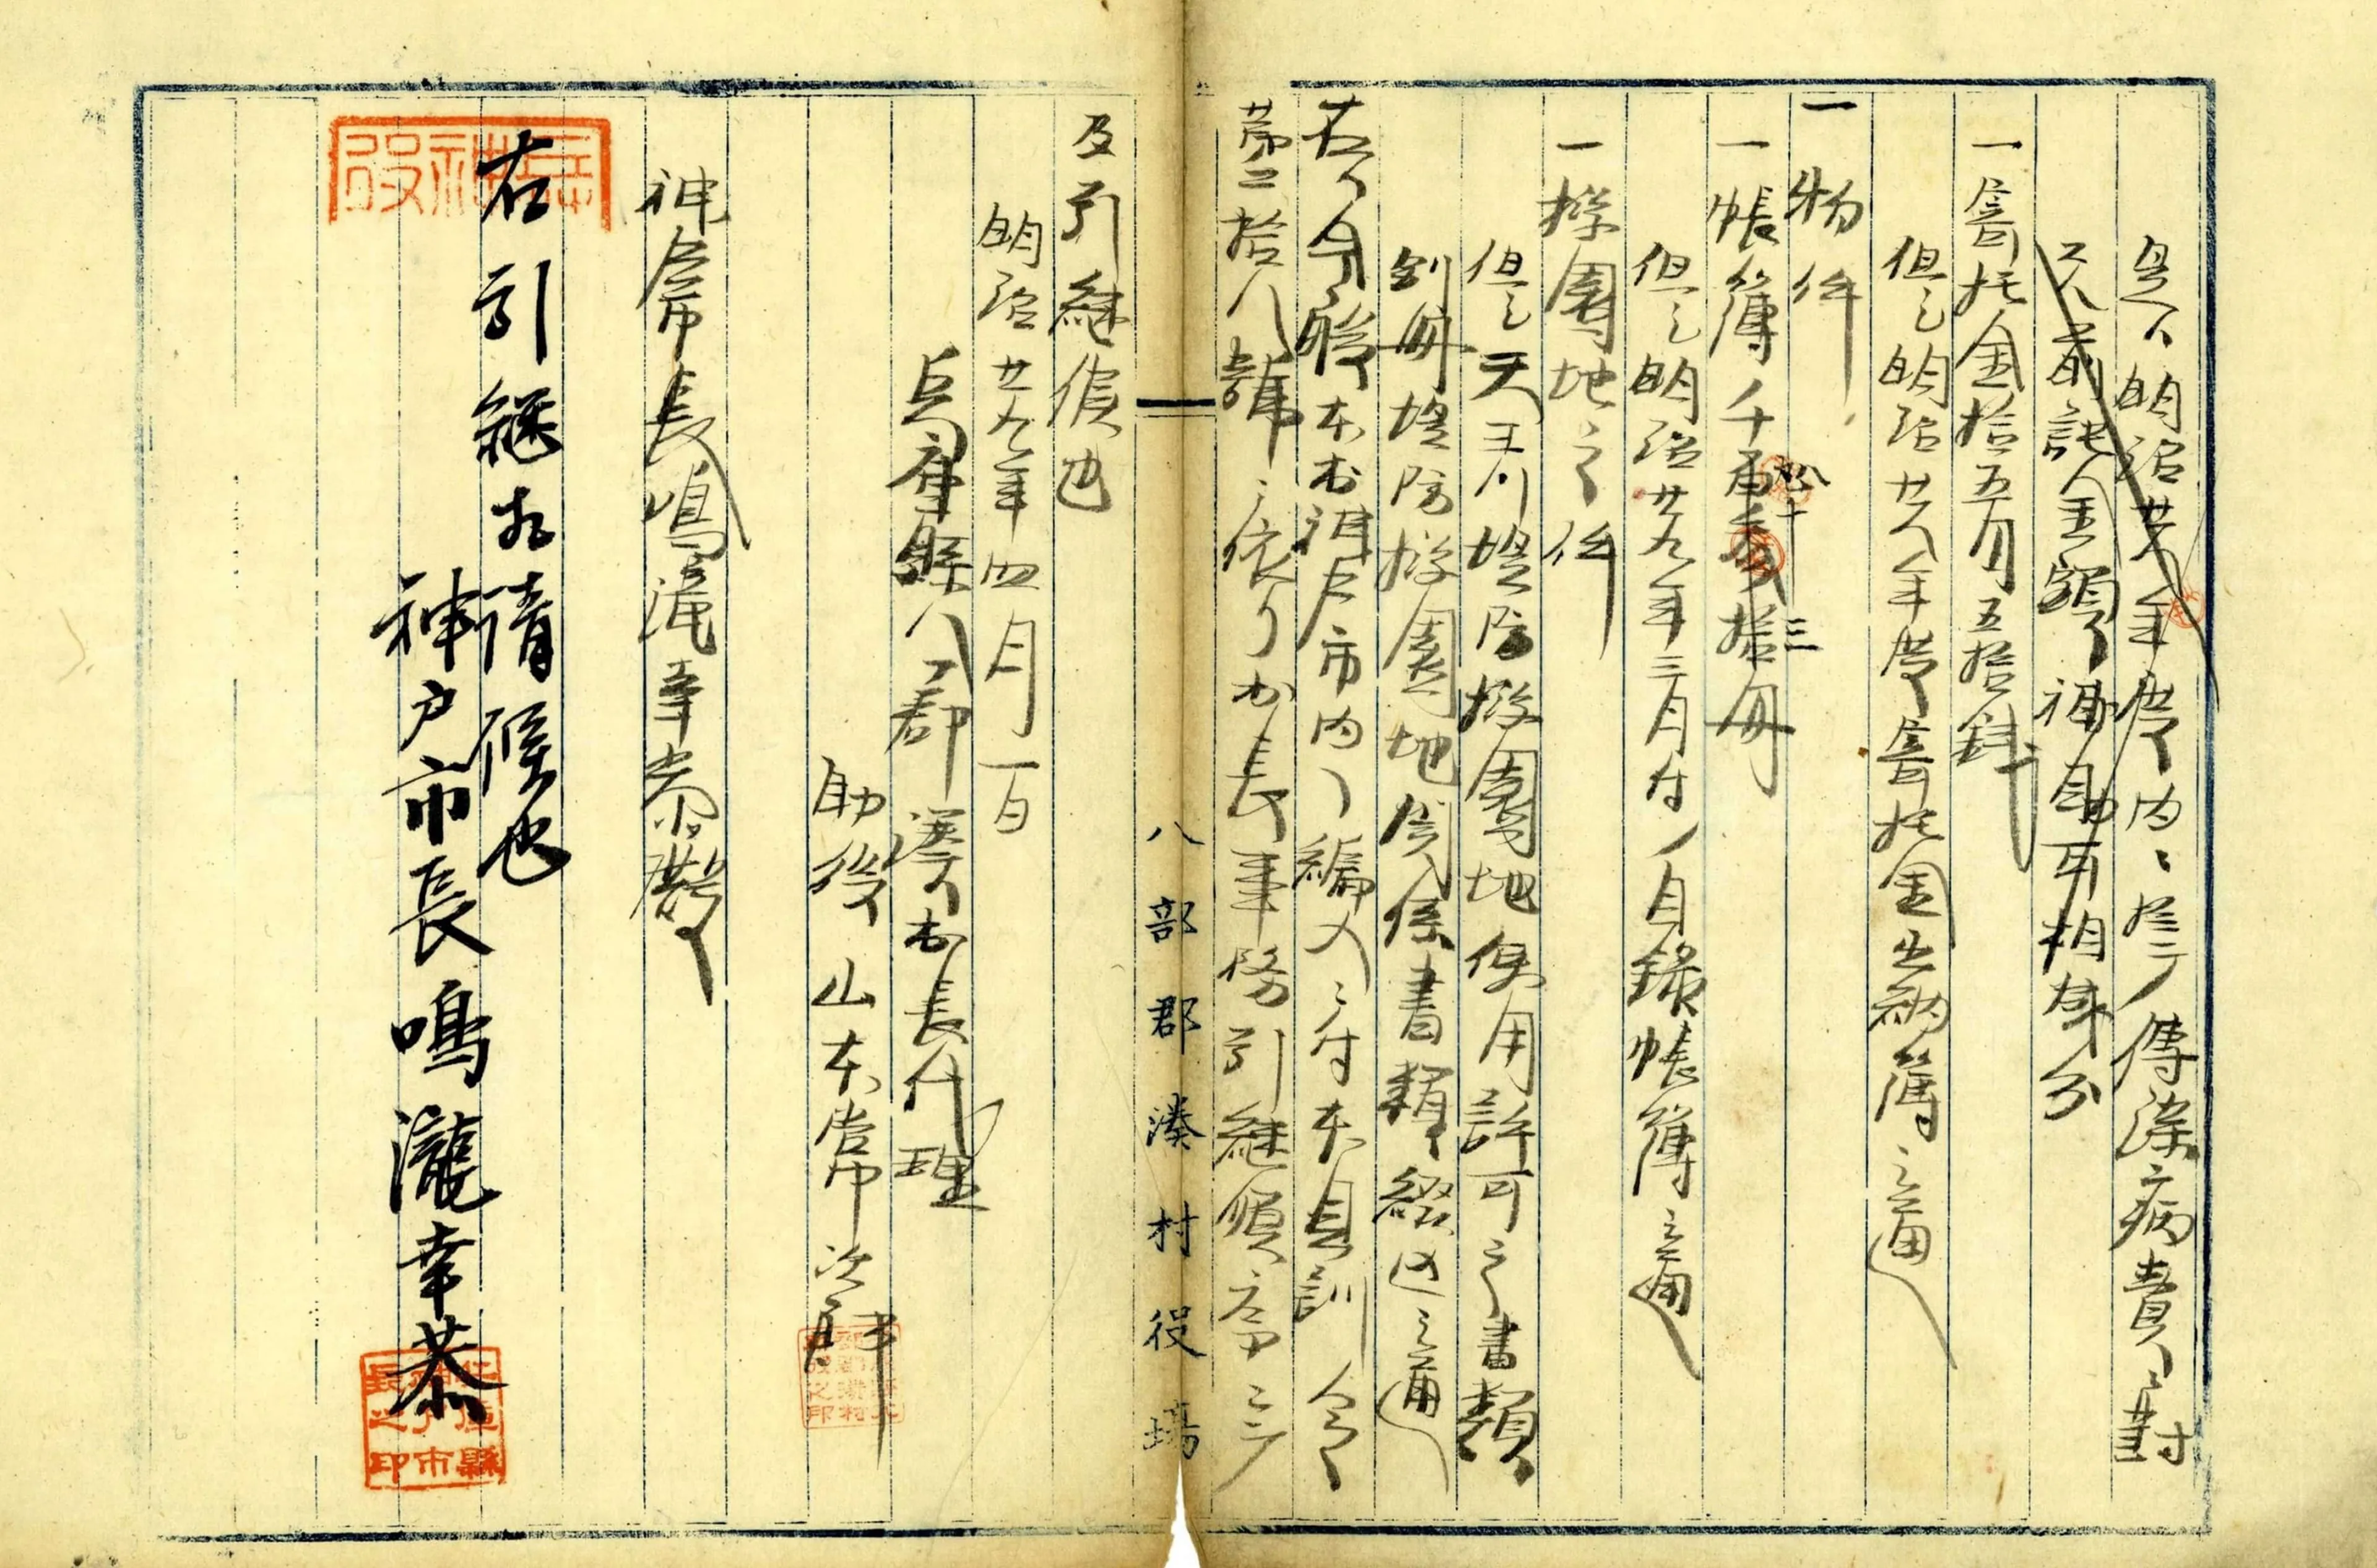 是ハ明治廿八年度内ニ於テ傳染病費ニ對
スル前記ノ金額補助可相成分
一寄托金拾五円五拾銭
但シ明治廿八年度寄托金出納簿ニ通
一物件
一帳簿千百 拾三冊
但シ明治廿九年三月付ノ目録帳簿ニ通
一揆園地之件
但シ天王川堤防揆園地使用許可之書類
別冊堤防揆園地関係書類綴込ニ通
右ハ今般本村神戸市内ヘ編入ニ付本縣訓令
第二拾八號ニ依リ村長事務引継順序ニ
及引継候也
明治廿九年四月一日
兵庫縣八部郡湊村長代理
助役 山本常次郎
神戸市長鳴滝幸恭殿
右引継相済候也
神戸市長鳴瀧幸恭
八部郡湊村役場